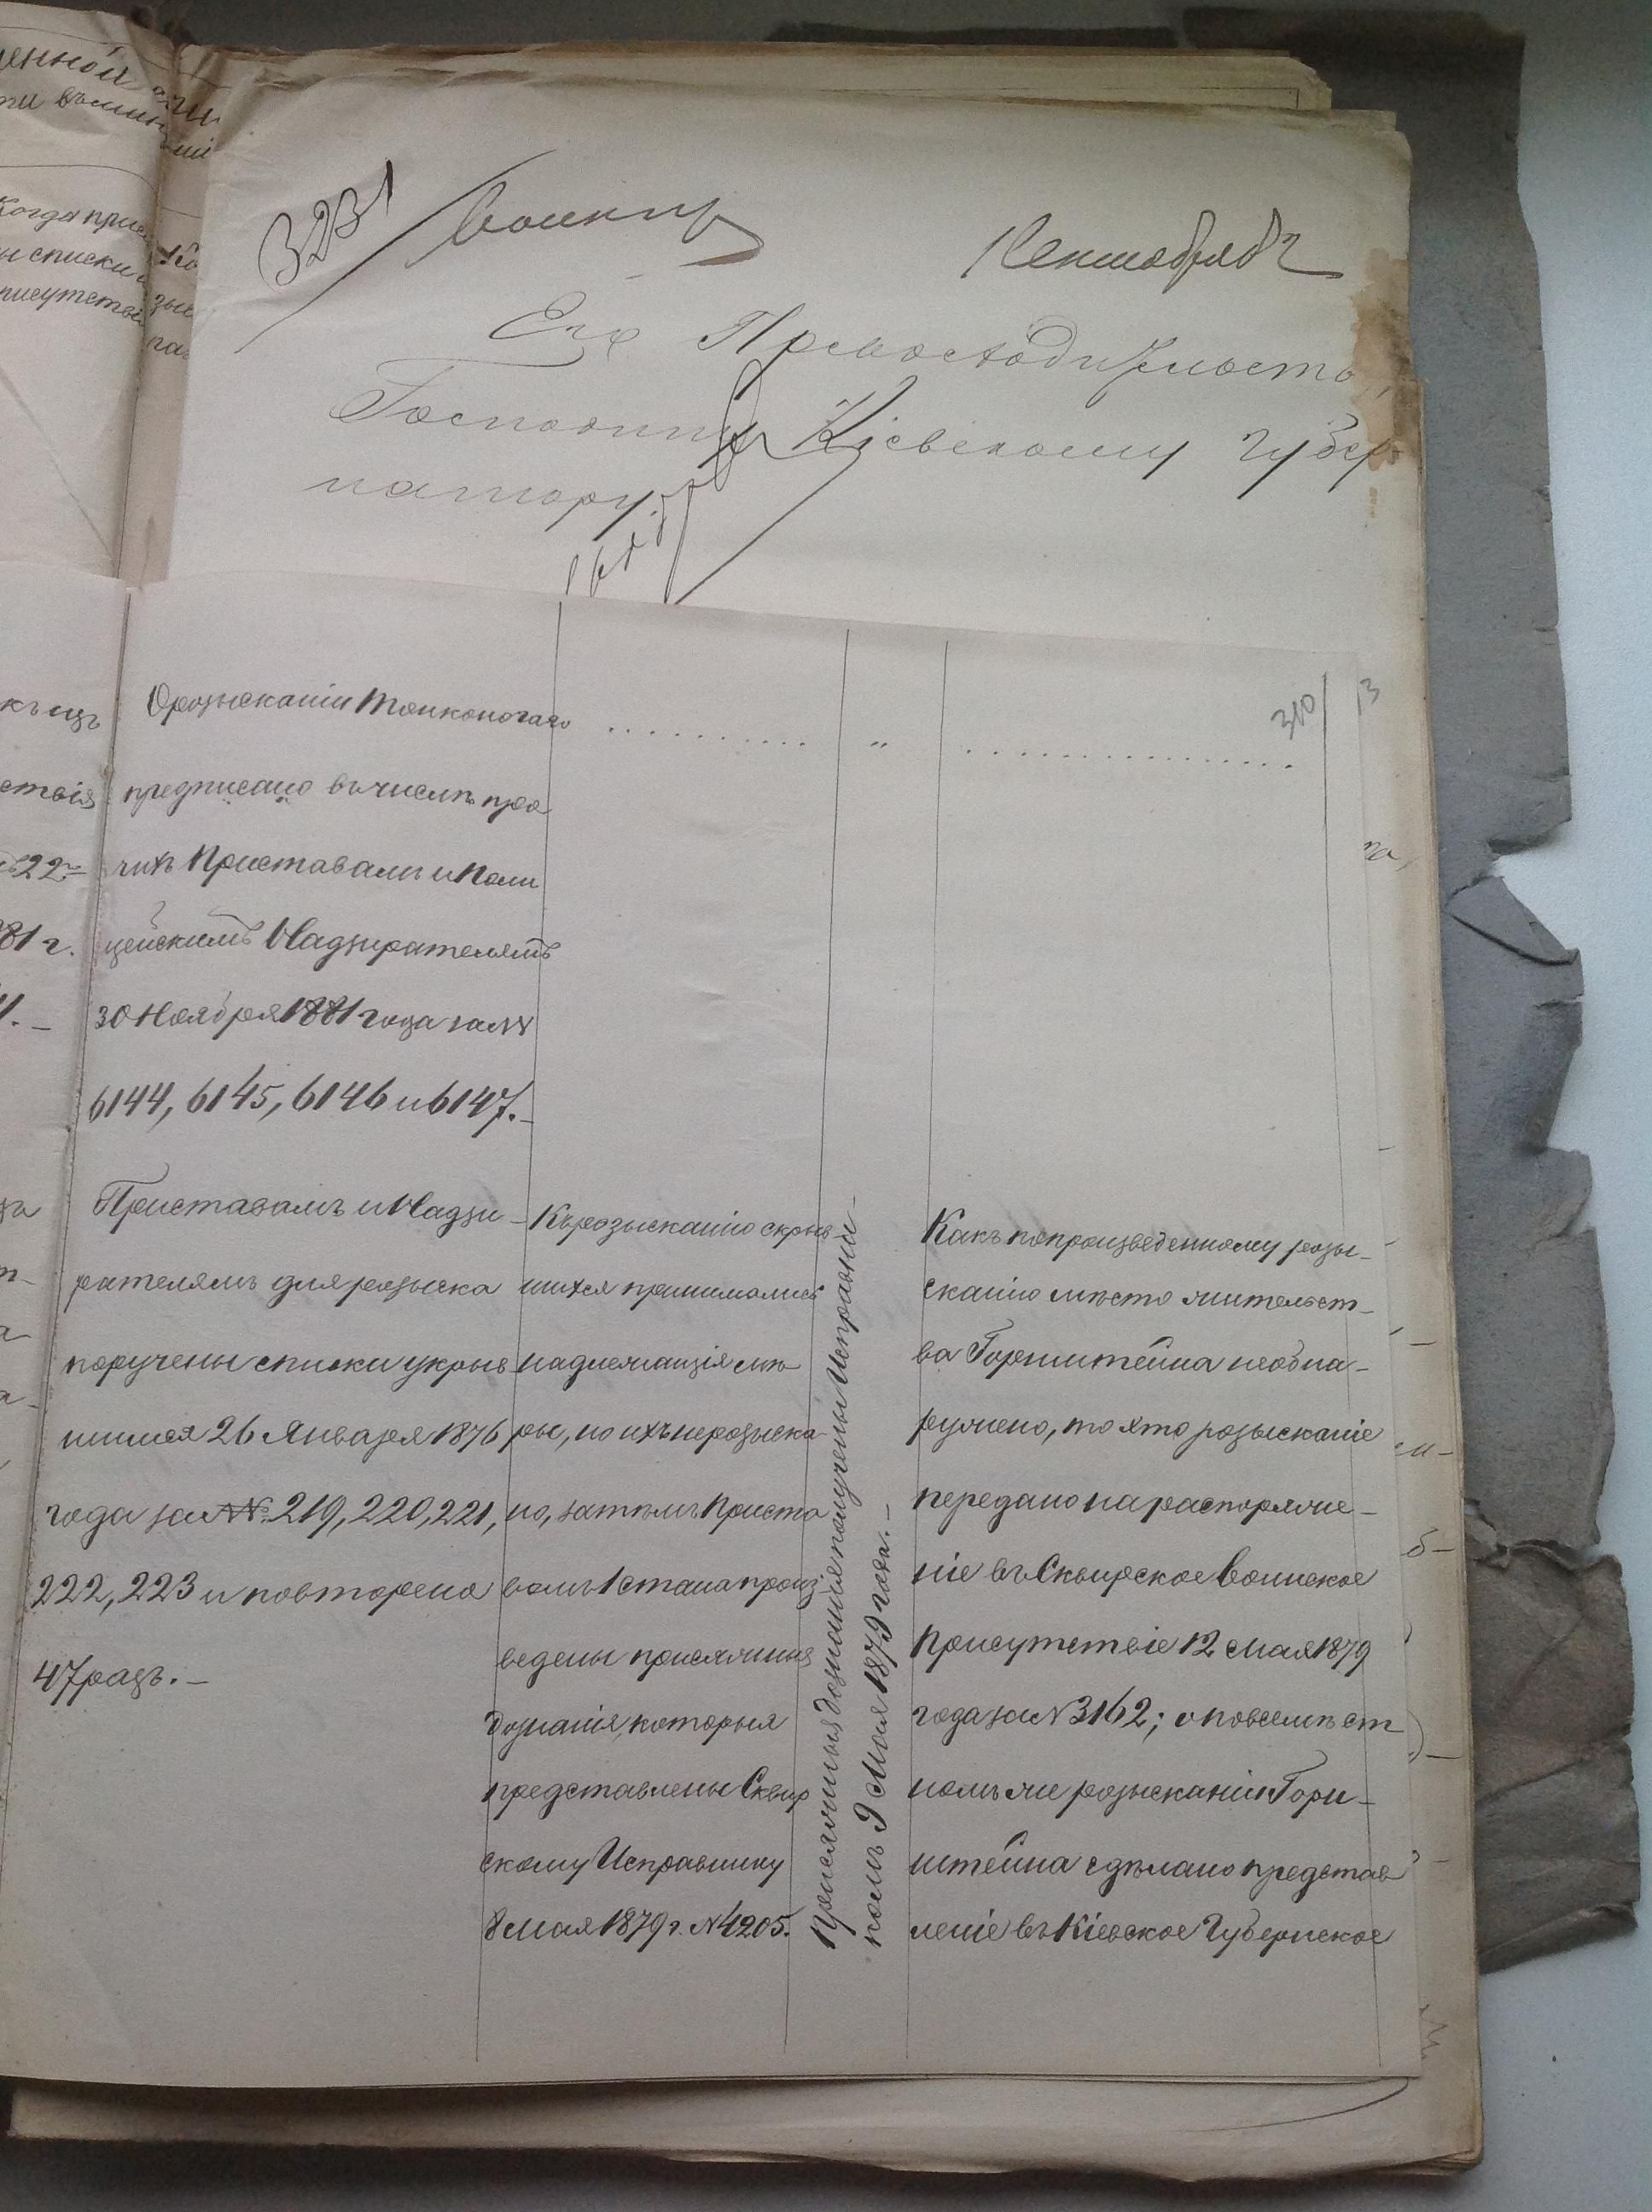 3231
1 Сентября
Его Превосходительству
Господину Кіевскому Губер
натору.
когда
и списки
310
О розысканіи Тонконогаго
предписано въ числѣ про
чихъ Приставамъ и Поли
цейскимъ Надзирателямъ
30 Ноября 1881 года за №№
6144, 6145, 6146 и 6147.–
къ изъ
ствія
22
81 г.
Приставамъ и Надзи–
рателямъ для розыска
поручены списки укрыв
шимся 26 Января 1876
года за №№ 219, 220, 221,
222, 223 и повторено
47 разъ.–
Къ розысканію скрыв
шихся принимались
надлежащія мѣ
ры, но ихъ не розыска
но, затѣмъ Приста
вомъ 1 стана произ
ведены присяжныя
дознанія, которыя
представлены Сквир
скому Исправнику
8 Мая 1879 г. № 4205.
Присяжныя дознанія получены Исправни–
комъ 9 Мая 1879 года.–
Какъ по произведенному розы–
сканію мѣсто жительст–
ва Горнштейна необна–
ружено, то это розысканіе
передано на распоряже–
ніе въ Сквирское Воинское
Присутствіе 12 Мая 1879
года за № 3162; о повсемѣст
номъ же розысканіи Горн–
штейна сдѣлано представ
леніе въ Кіевское Губернское